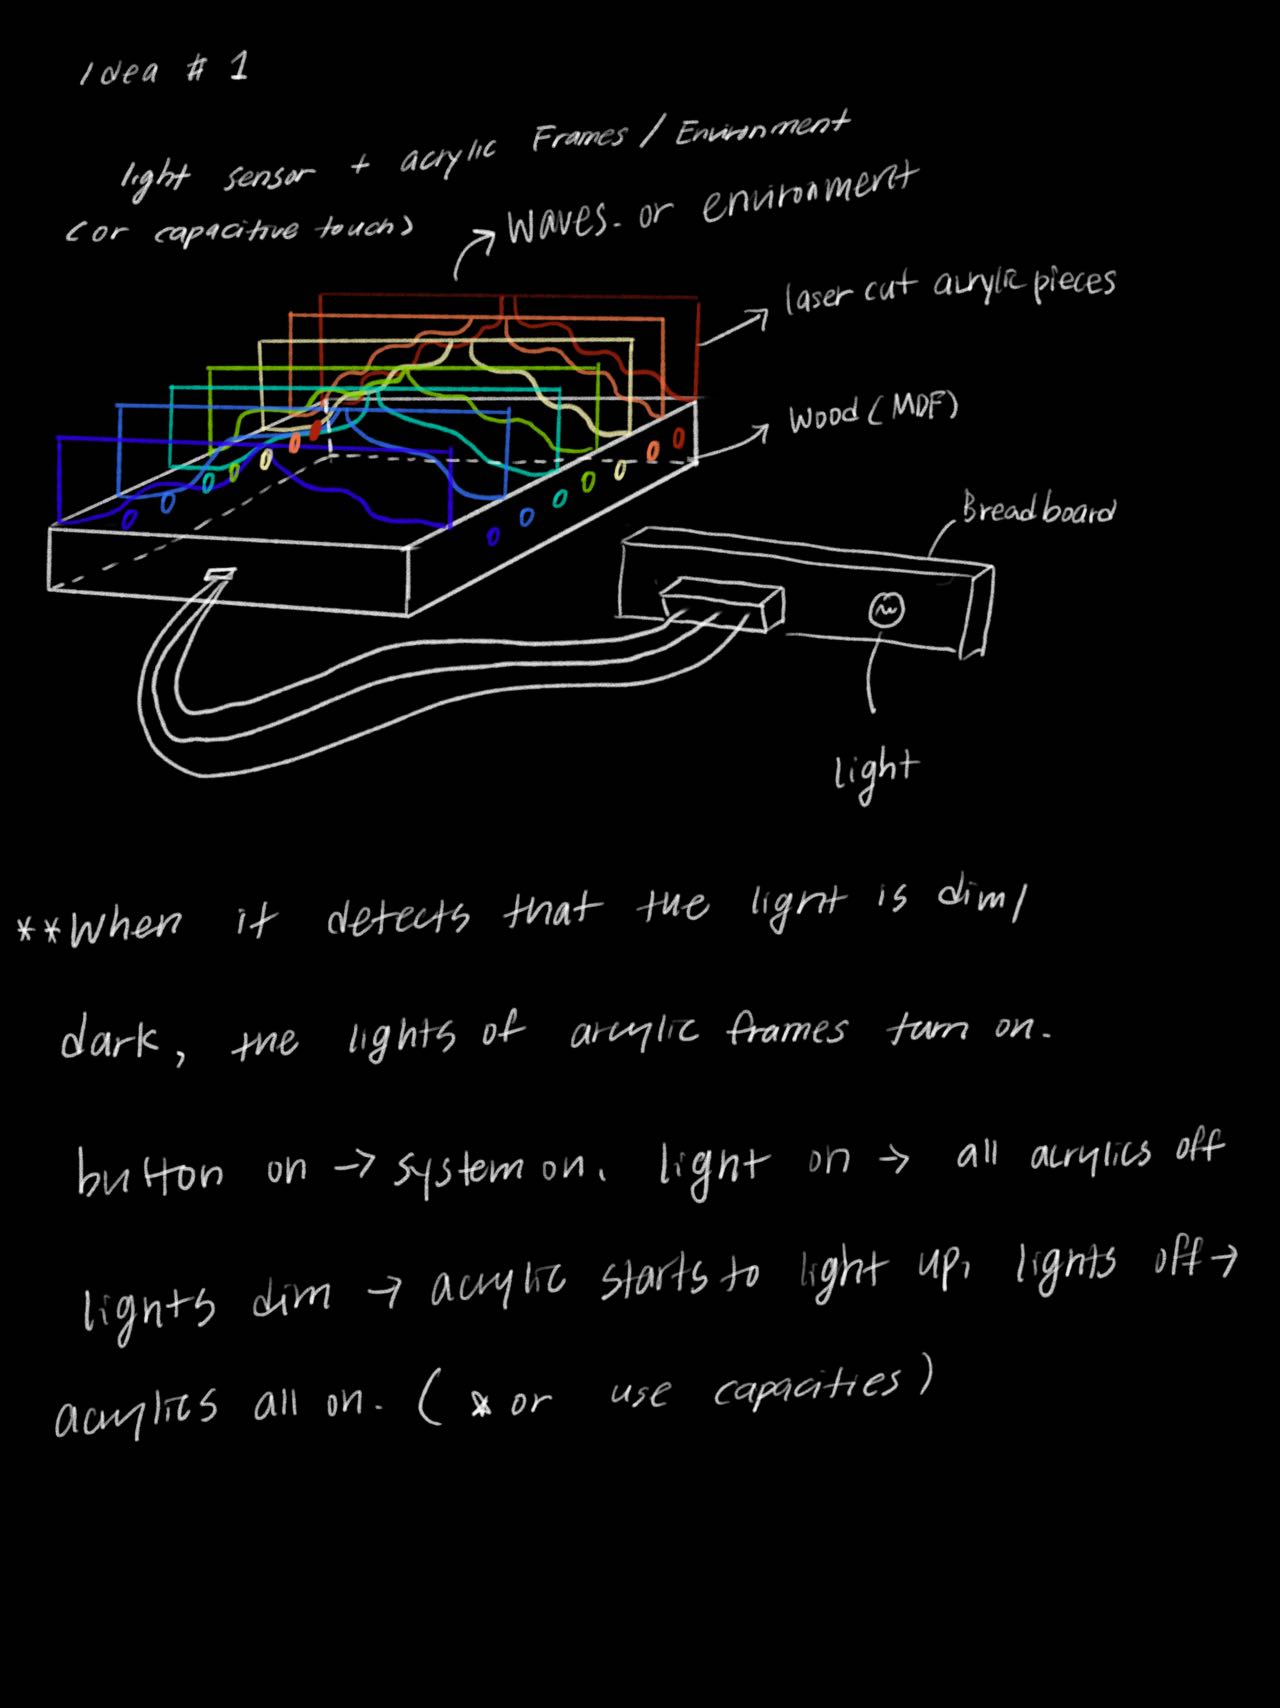 Idea # 1
light sensor + acrylic Frames / Environment
(or capacitive touch)
waves. or environment
laser cut acrylic pieces
wood (MDF)
Breadboard
light
**When it detects that the light is dim/
dark, the lights of arcylic frames turn on.
button on → system on. light on → all acrylics off
lights dim → acrylic starts to light up, lights off →
acrylics all on. (* or use capacities)